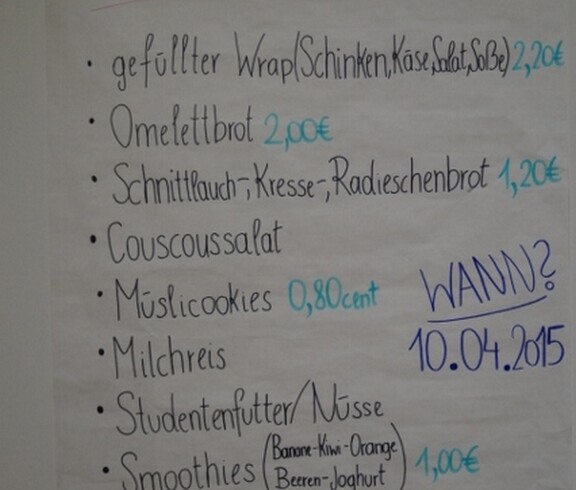 • gefüllter Wrap(Schinken,Käse,Salat,Soße) 2,20€
• Omelettbrot 2,00€
• Schnittlauch-,Kresse-,Radieschenbrot 1,20€
• Couscoussalat
• Müslicookies 0,80cent
WANN?
• Milchreis
10.04.2015
• Studentenfutter/Nüsse
• Smoothies (Banane-Kiwi-Orange) 1,00€
Beeren-Joghurt